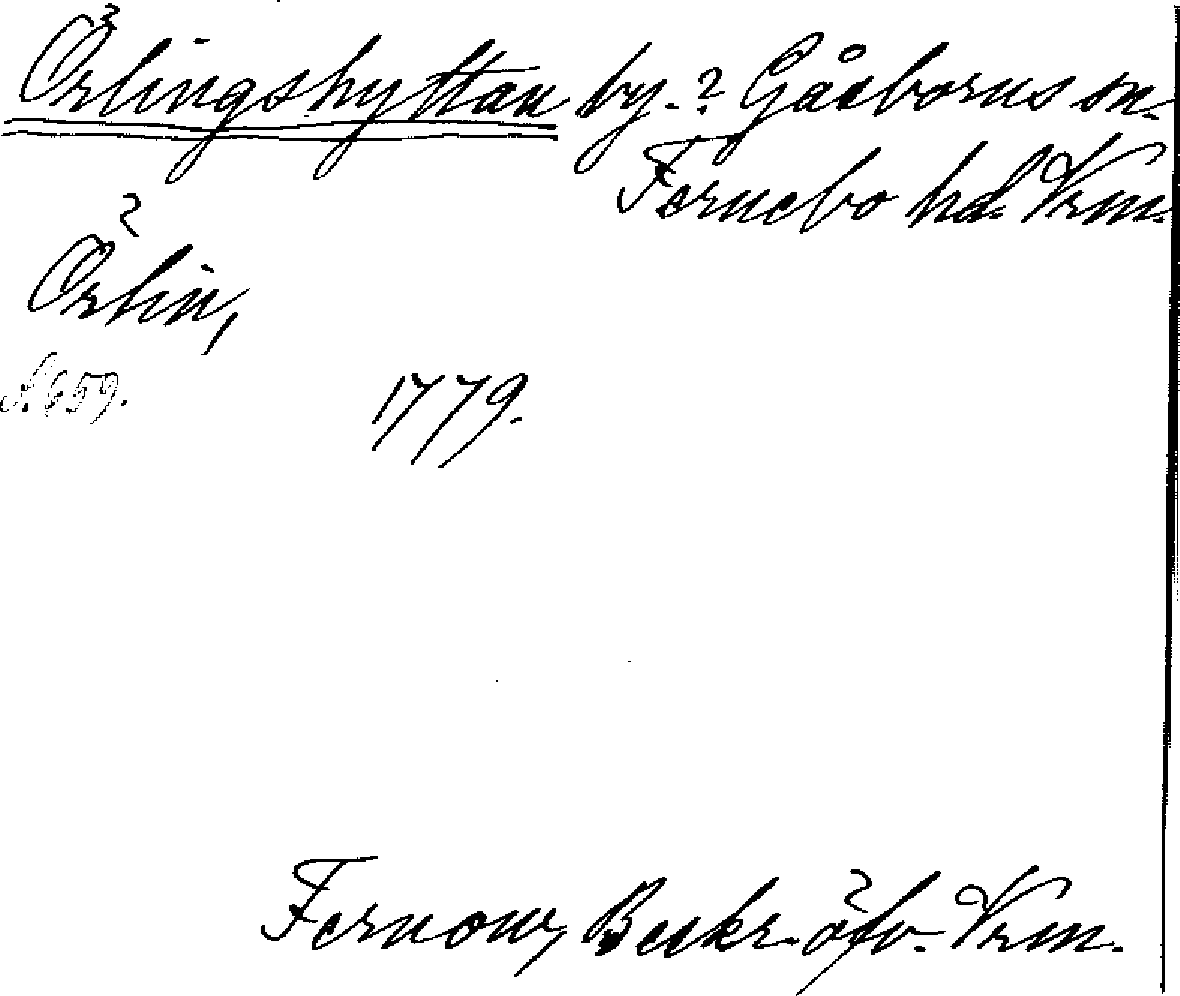 Örlingshyttan by.? Gåsborns sn.
Fernebo hd. Vrm.
Örlin,
s. 659.
1779.
Fernow, Beskr. öfv. Vrm.